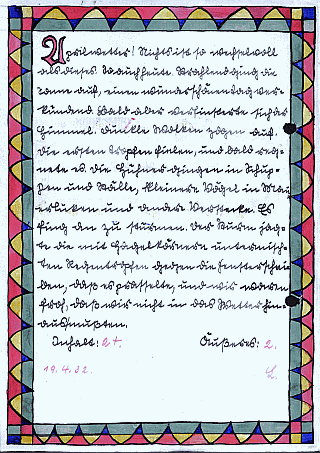 Aprilwetter! Nichts ist so wechselvoll
als dieses. So auch heute. Strahlend ging die
Sonne auf, einen wunderschönen Tag ver-
kündend. Bald aber verfinsterte sich der
Himmel. Dunkle Wolken zogen auf.
Die ersten Tropfen fielen, und bald reg-
nete es. Die Hühner gingen in Schup-
pen und Ställe, kleinere Vögel in Mau-
erluken und andere Verstecke. Es
fing an zu stürmen. Der Sturm jag-
te die mit Hagelkörnern untermisch-
ten Regentropfen gegen die Fensterschei-
ben, daß es prasselte, und wir waren
froh, daß wir nicht in das Wetter hin-
ausmußten.
Inhalt: 2+. Äußeres: 2.
19.4.32.